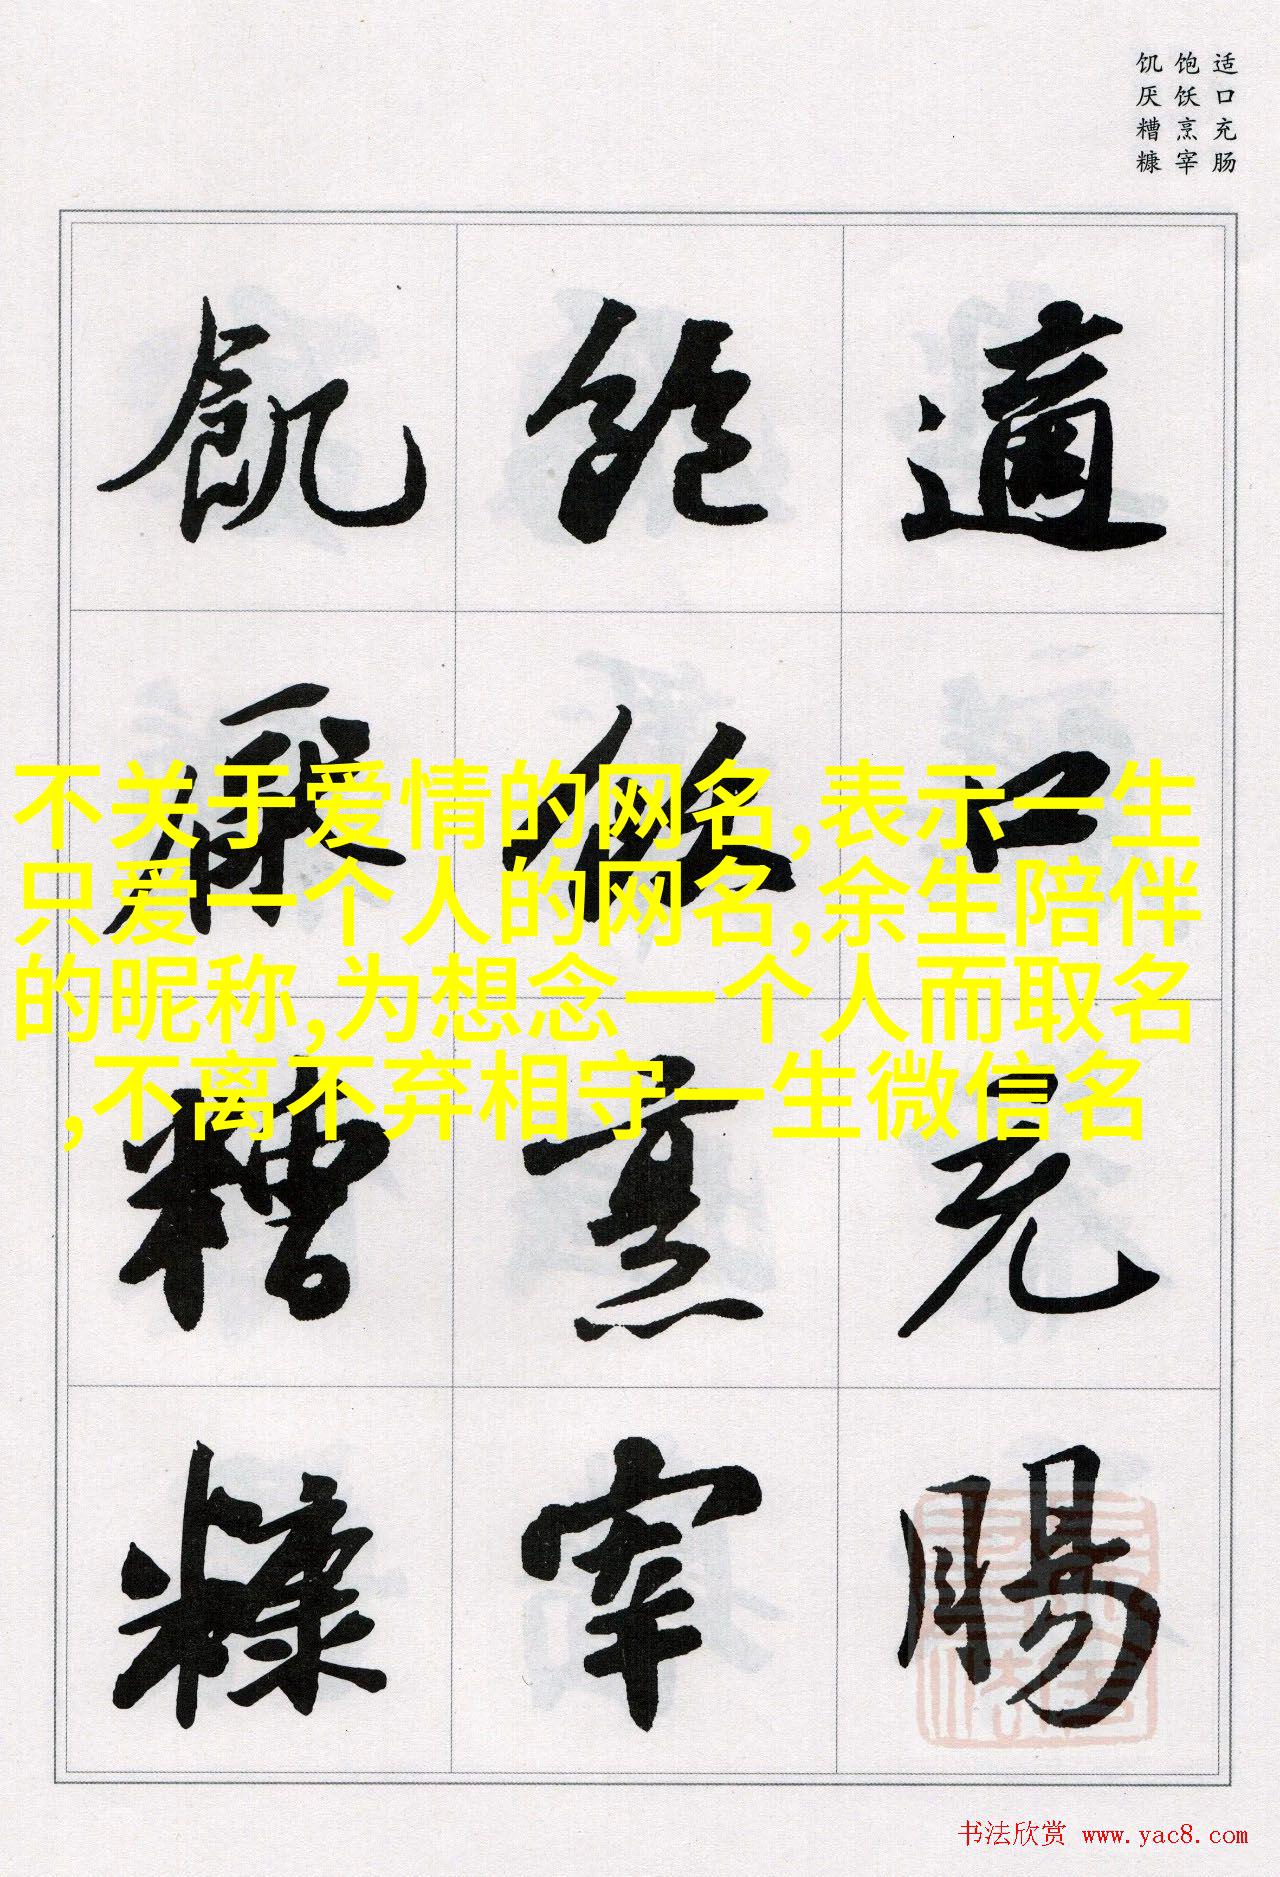 适口充肠
饱饫烹宰
饥厌糟糠
適口充腸
飽飫烹宰
飢厭糟糠
不关于爱情的网名,表示一生
只爱一个人的网名,余生陪伴
的昵称,为想念一个人而取名
,不离不弃相守一生微信名
书法欣赏 www.yac8.com